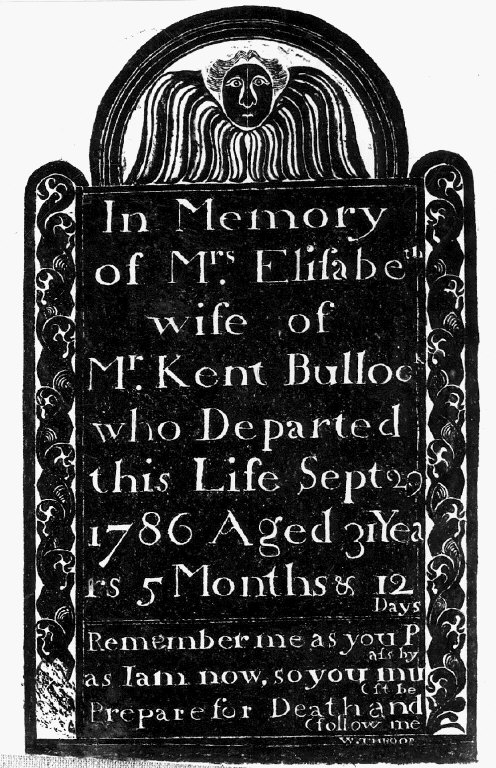 In Memory
of Mrs. Eliſabeth
wife of
Mr. Kent Bullock
who Departed
this Life Sept 29
1786 Aged 31 Yea
rs 5 Months & 12
Days
Remember me as you P
aſs by
as I am now, so you mu
(ſt be
Prepare for Death and
(follow me